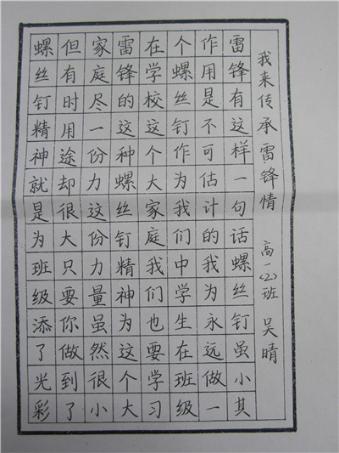 我来传承雷锋情 高一(2)班 吴晴
雷锋有这样一句话螺丝钉虽小其
作用是不可估计的我为永远做一
个螺丝钉作为我们中学生在班级
在学校这个大家庭我们也要学习
雷锋的这种螺丝钉精神为这个大
家庭尽一份力这份力量虽然很小
但有时用途却很大只要你做到了
螺丝钉精神就是为班级添了光彩